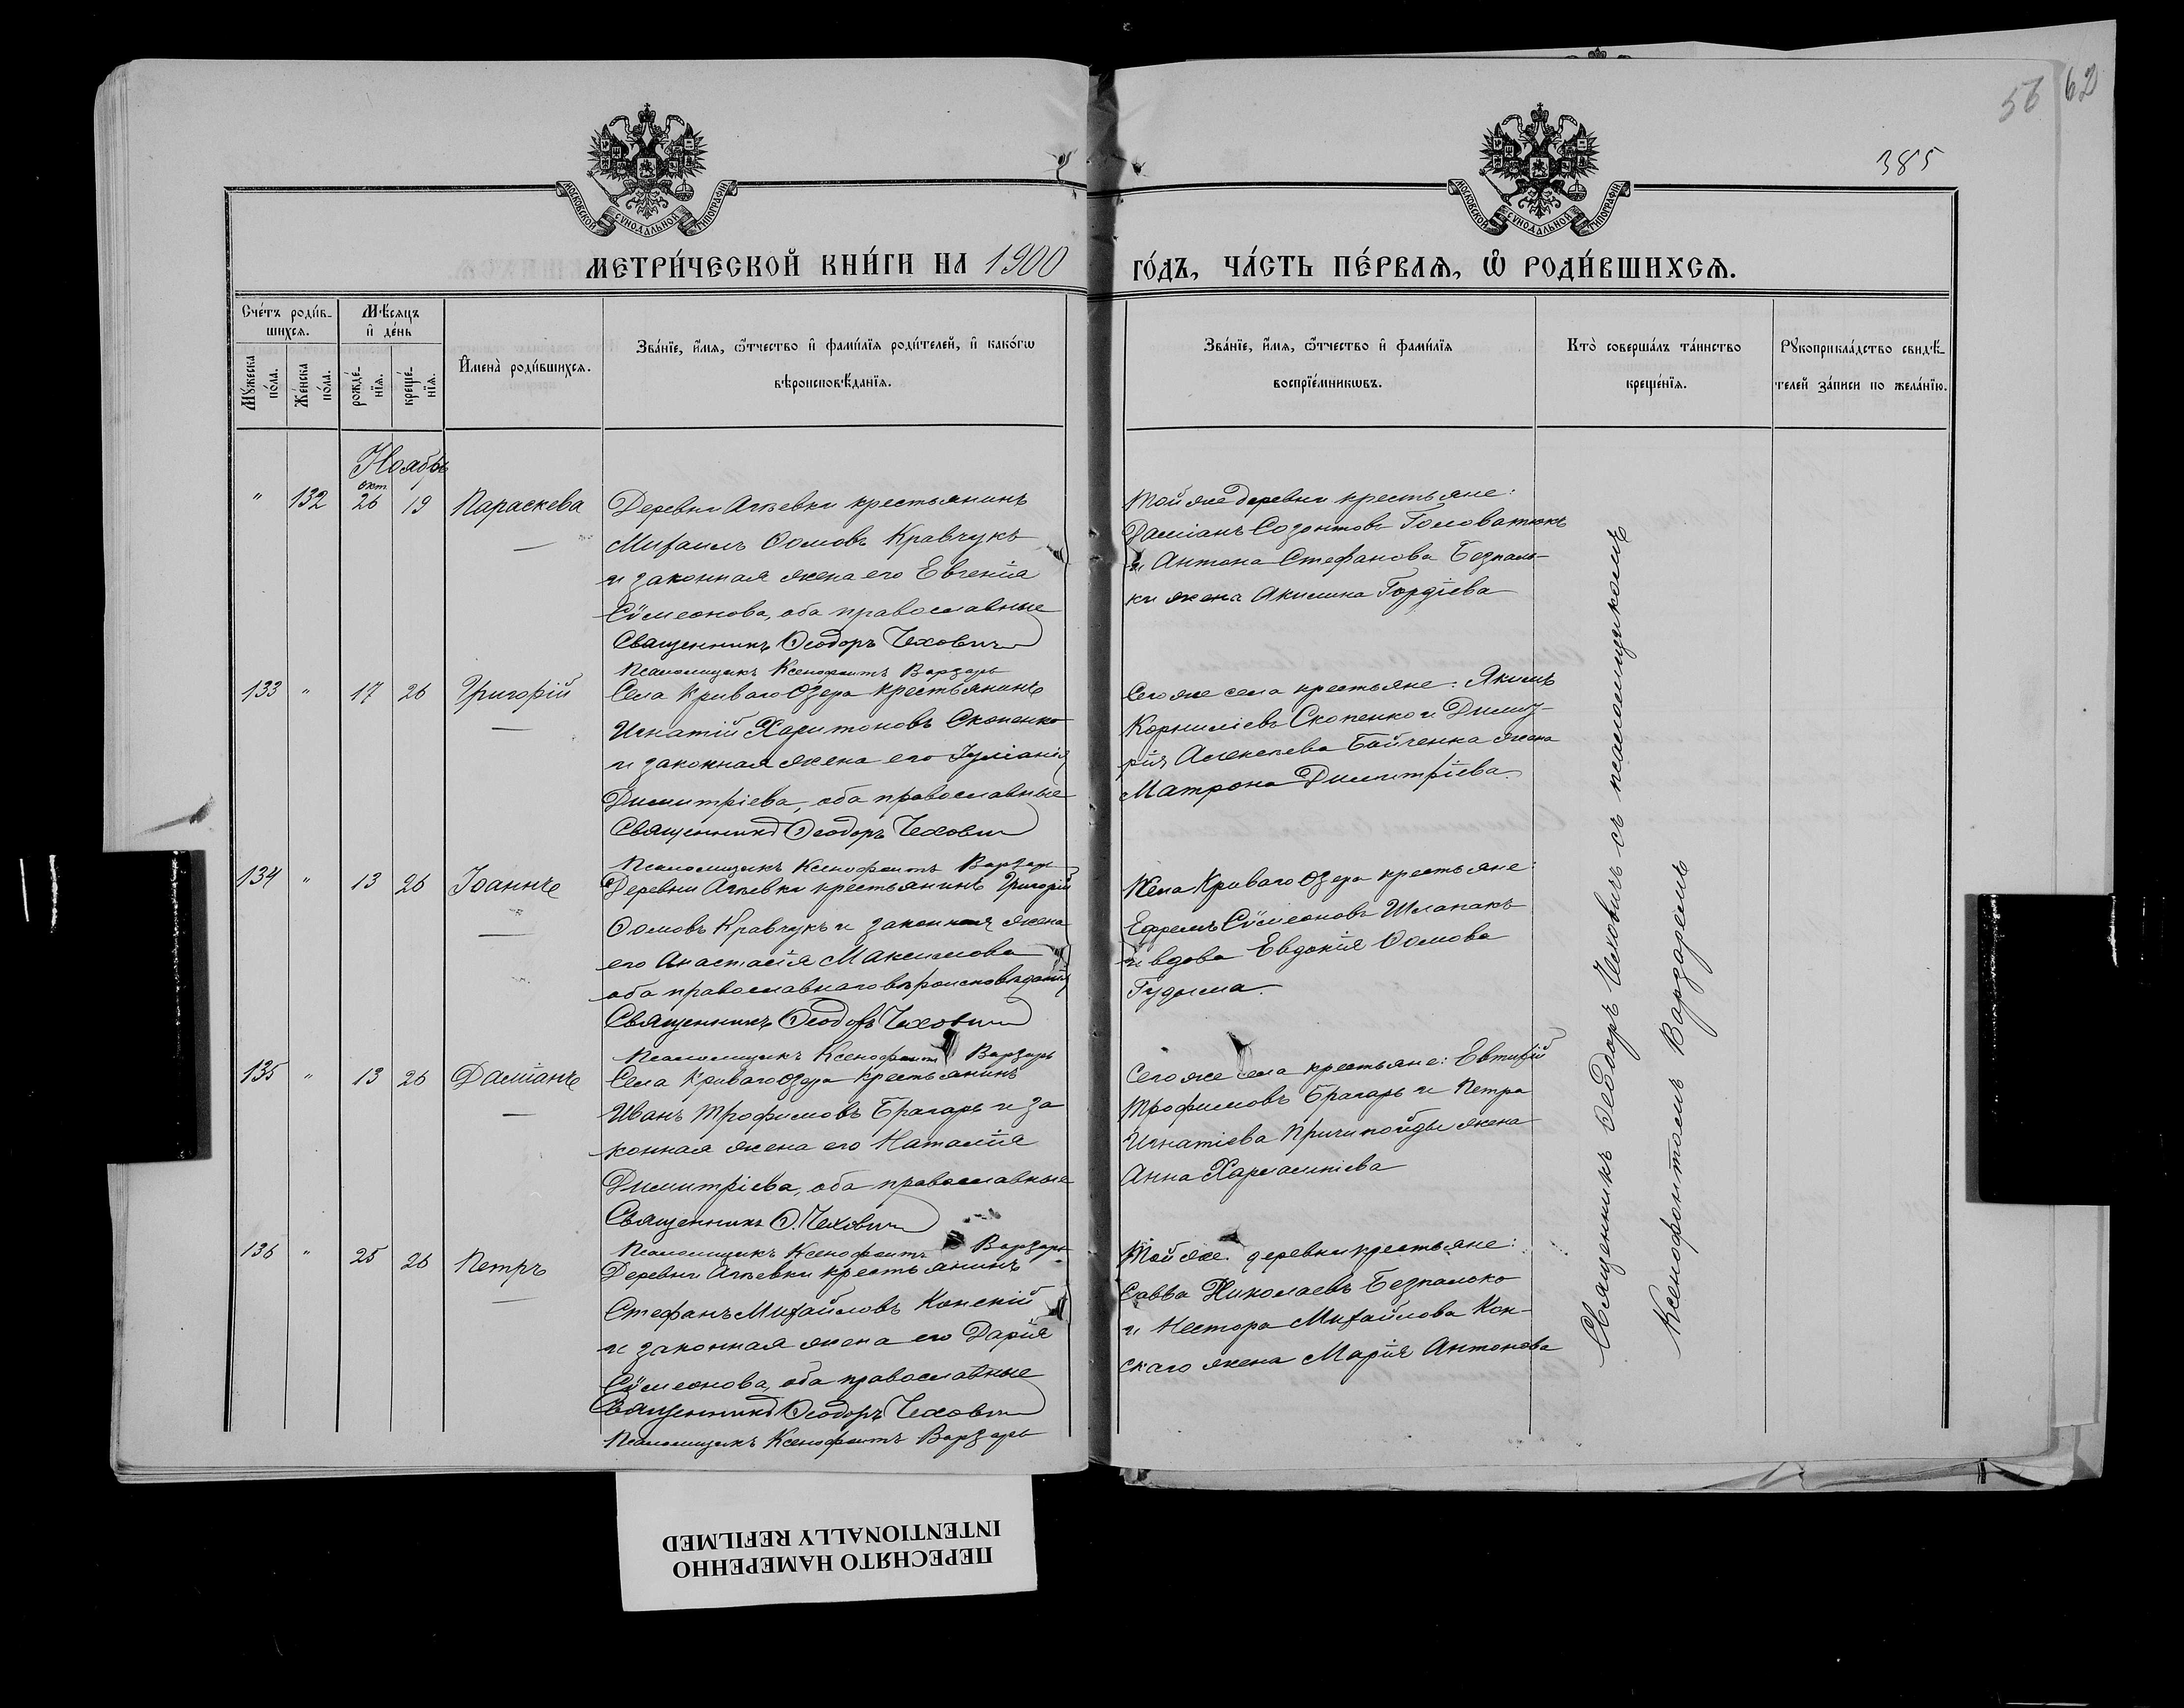 56 62
385
МОСКОВСКОЙ СѴНОДАЛЬНОЙ ТИПОГРАФІИ
МОСКОВСКОЙ СѴНОДАЛЬНОЙ ТИПОГРАФІИ
МЕТРИ́ЧЕСКОЙ КНИ́ГИ НА 1900 ГО́ДЪ, ЧА́СТЬ ПЕ́РВАѦ, Ѡ҆ РОДИ́ВШИХСѦ.
Сче́тъ роди́в-
шихсѧ.
Мѣ́сѧцъ
и҆ де́нь
Мꙋ́жеска
по́ла.
Же́нска
по́ла.
рожде́-
нїѧ.
креще́-
нїѧ.
И҆мена̀ роди́вшихсѧ.
Зва́нїе, и҆́мѧ, ѻ҆́тчество и҆ фами́лїѧ роди́телей, и҆ како́гѡ
вѣроисповѣ́данїѧ.
Зва́нїе, и҆́мѧ, ѻ҆́тчество и҆ фами́лїѧ
воспрїе́мникѡвъ.
Кто̀ соверша́лъ та́инство
креще́нїѧ.
Рꙋкоприкла́дство свидѣ́-
телей за́писи по жела́нїю.
Ноябрь
" 132 окт 26 19 Параскева
Деревни Агѣевки крестьянинъ
Михаилъ Ѳомовъ Кравчукъ
и законная жена его Евгенія
Сѵмеонова, оба православные
Священникъ Ѳеодоръ Чехович
Псаломщикъ Ксенофонтъ Варзарь
Той же деревни крестьяне:
Даміанъ Созонтовъ Головатюкъ
и Антона Стефанова Безпаль-
ки жена Акилина Гордіева
133 " 17 26 Григорій
Села Криваго Озера крестьянинъ
Игнатій Харитоновъ Скопенко
и законная жена его Іуліанія
Димитріева, оба православные
Священникъ Ѳеодоръ Чехович
Псаломщикъ Ксенофонтъ Варзарь
Сего же села крестьяне: Якимъ
Корниліевъ Скопенко и Димит-
рія Алексѣева Бойченка жена
Матрона Димитріева.
134 " 13 26 Іоаннъ
Деревни Агѣевки крестьянинъ Григорій
Ѳомовъ Кравчукъ и законная жена
его Анастасія Максимова
оба православнаго вѣроисповѣданія
Священникъ Ѳеодоръ Чехович
Псаломщикъ Ксенофонтъ Варзарь
Села Криваго Озера крестьяне:
Ефремъ Сѵмеоновъ Шлапакъ
и вдова Евдокія Ѳомова
Гудыма.
135 " 13 26 Даміанъ
Села Криваго Озера крестьянинъ
Иванъ Трофимовъ Брагарь и за
конная жена его Наталія
Димитріева, оба православные
Священникъ Ѳ. Чехович
Псаломщикъ Ксенофонтъ Варзарь
Сего же села крестьяне: Евтихій
Трофимовъ Брагарь и Петра
Игнатіева Причипойды жена
Анна Харлампіева
136 " 25 26 Петръ
Деревни Агѣевки крестьянинъ
Стефанъ Михайловъ Конскій
и законная жена его Дарія
Сѵмеонова, оба православные
Священникъ Ѳеодоръ Чехович
Псаломщикъ Ксенофонтъ Варзарь
Той же деревни крестьяне:
Савва Николаевъ Безпалько
и Нестора Михайлова Кон-
скаго жена Марія Антонова
Священникъ Ѳеодоръ Чеховичъ съ псаломщикомъ
Ксенофонтомъ Варзаремъ
ПЕРЕСНЯТО НАМЕРЕННО
INTENTIONALLY REFILMED